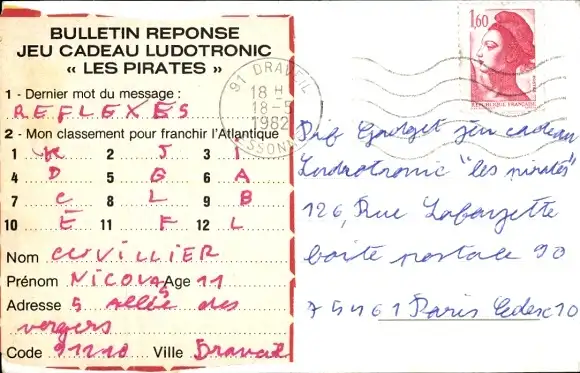 BULLETIN REPONSE
JEU CADEAU LUDOTRONIC
« LES PIRATES »
1 - Dernier mot du message :
REFLEXES
2 - Mon classement pour franchir l'Atlantique
1 K 2 J 3 I
4 D 5 G 6 A
7 C 8 L 9 B
10 E 11 F 12 L
Nom CUVILLIER
Prénom NICOLAS Age 11
Adresse 5 allée des
vergers
Code 91210 Ville Draveil
91 DRAVEIL
18 H
18-5
1982
ESSONNE
1,60
REPUBLIQUE FRANÇAISE
Pif Gadget jeu cadeau
Ludrotronic "les pirates"
126, Rue Lafayzette
boite postale 90
75461 Paris Cedex 10